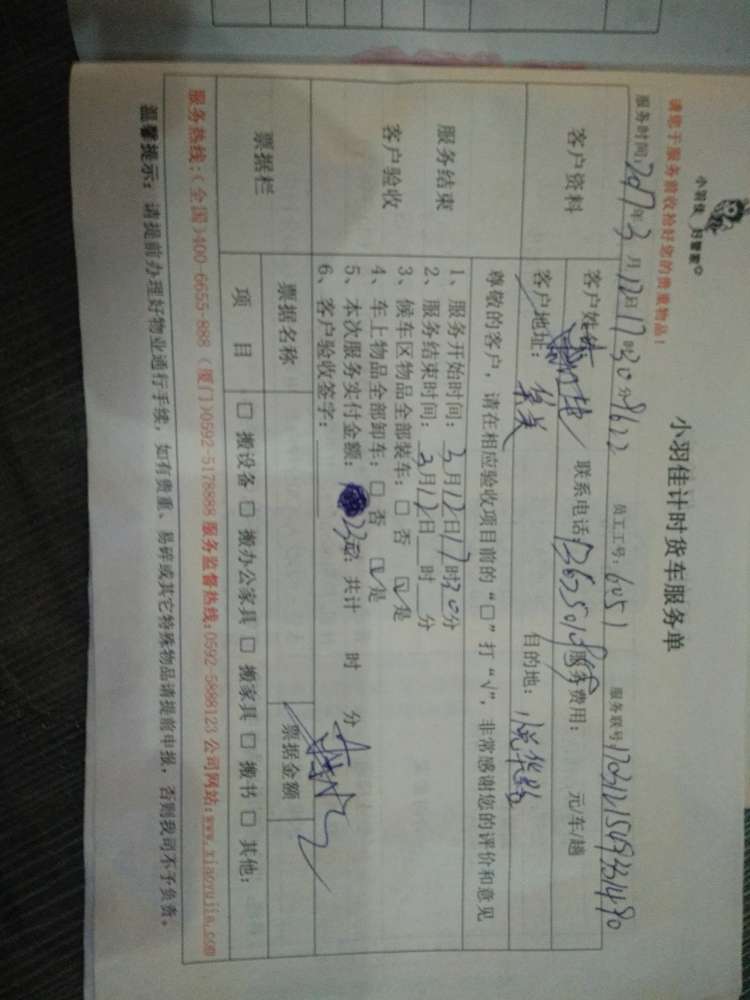 小羽佳 好管家
小羽佳计时货车服务单
请您于服务前收拾好您的贵重物品！
服务时间：2017年3月12日17时30分 员工工号：6051 服务联号
客户资料
客户姓名： 联系电话： 服务费用： 元/车/趟
客户地址： 目的地：悦华路
尊敬的客户，请在相应验收项目前的“□”打“√”，非常感谢您的评价和意见
服务结束
客户验收
1、服务开始时间：3月12日17时30分
2、服务结束时间：3月12日 时 分
3、候车区物品全部装车：□ 否 ☑ 是
4、车上物品全部卸车：□ 否 ☑ 是
5、本次服务实付金额： 共计 时 分
6、客户验收签字：
票据栏 票据名称 票据金额
项 目 □ 搬设备 □ 搬办公家具 □ 搬家具 □ 搬书 □ 其他：
服务热线：（全国）400-6655-888（厦门）0592-5178888 服务监督热线：0592-5888123 公司网站：www.xiaoyujia.com
温馨提示：请提前办理好物业通行手续，如有贵重、易碎或其它特殊物品请提前申报，否则我司不予负责。